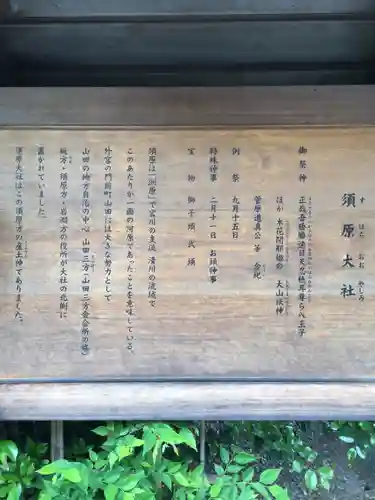 須原大社
すはらおおやしろ
御祭神 正哉吾勝勝速日天忍穂耳尊ら八王子
ほか 木花開耶姫命 大山祇神
菅原道真公 等 合祀
例祭 九月十五日
特殊神事 二月十一日 お頭神事
宝物 獅子頭 弐頭
須原は「洲原」で宮川の支流 清川の流域で
このあたりが一面の河原であったことを意味している。
外宮の門前町山田には大きな努力として
山田の地方自治の中心 山田三方（山田三方会合所の跡）
坂方・須原方・岩淵方の役所が大社の北側に
置かれていました。
須原大社はこの須原方の産土神でありました。